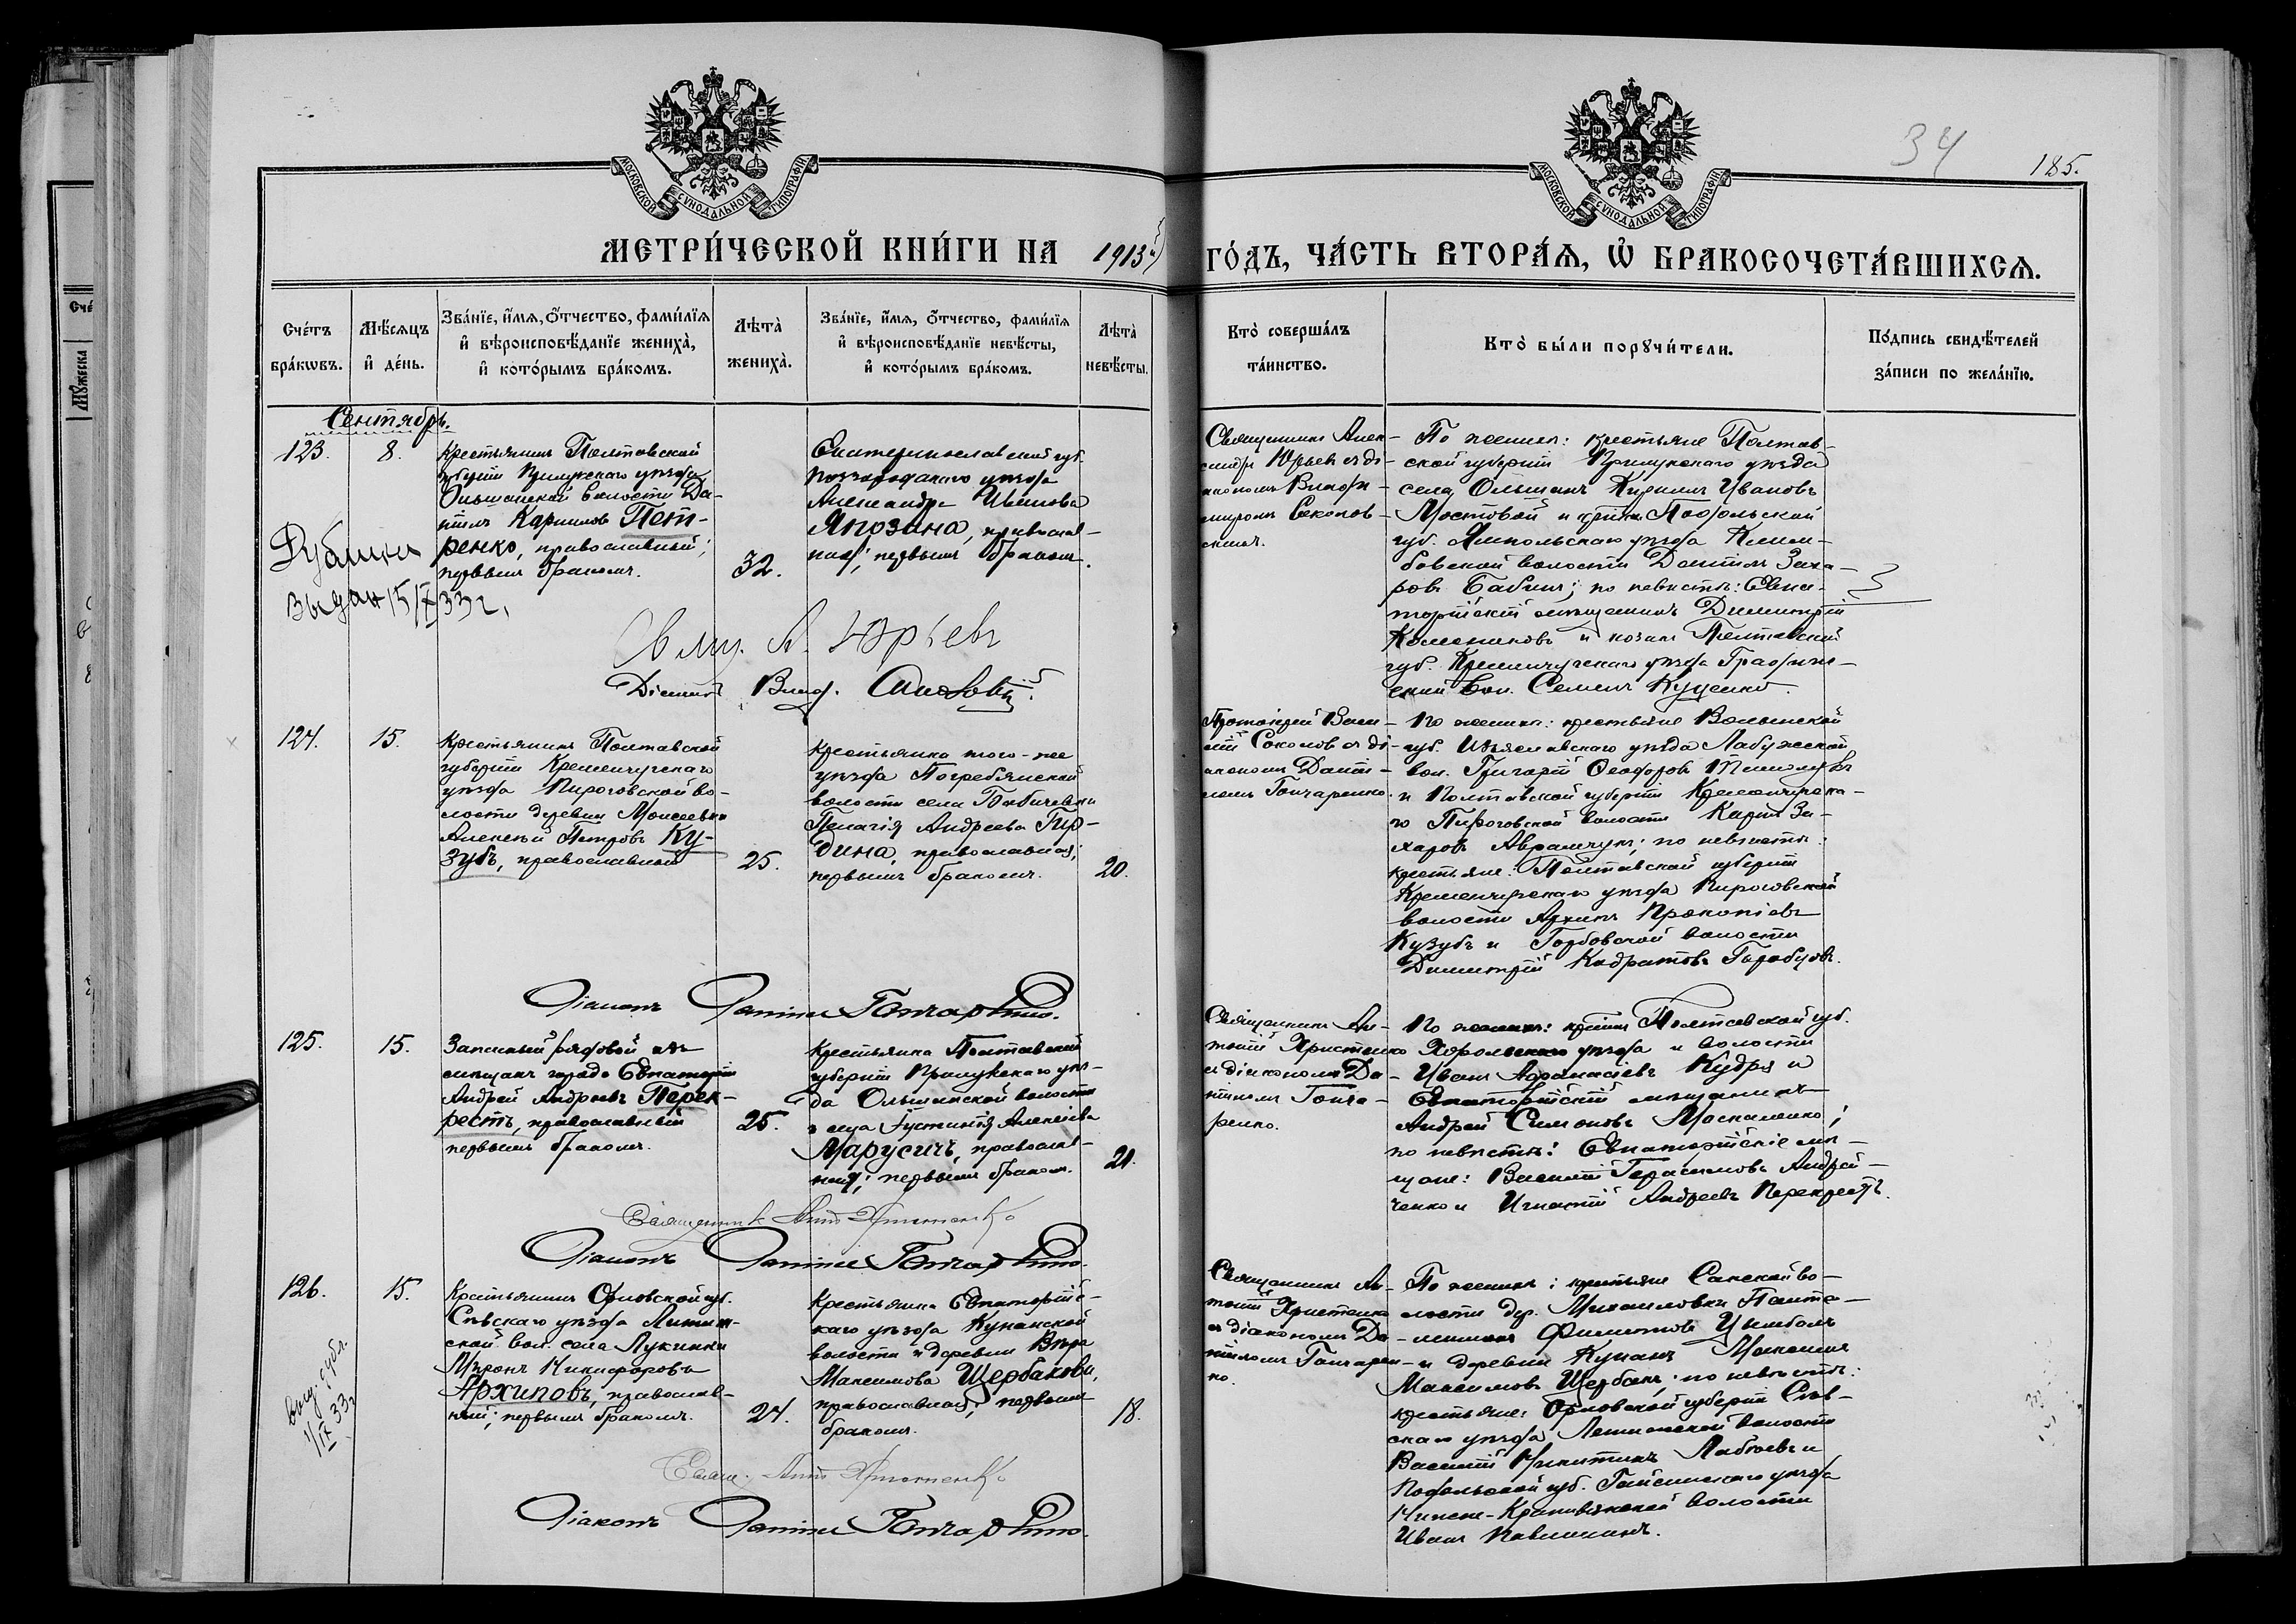 34
185.
МОСКОВСКОЙ СѴНОДАЛЬНОЙ ТИПОГРАФІИ
МОСКОВСКОЙ СѴНОДАЛЬНОЙ ТИПОГРАФІИ
МЕТРИ́ЧЕСКОЙ КНИ́ГИ НА 1913 ГО́ДЪ, ЧА́СТЬ ВТОРА́Ѧ, Ѡ҆ БРАКОСОЧЕТА́ВШИХСѦ.
Сче́тъ бра́кѡвъ.
Мѣ́сѧцъ и҆ де́нь.
Зва́нїе, и҆́мѧ, ѻ҆́тчество, фами́лїѧ
и҆ вѣроисповѣ́данїе жениха̀,
и҆ кото́рымъ бра́комъ.
Лѣта̀ жениха̀.
Зва́нїе, и҆́мѧ, ѻ҆́тчество, фами́лїѧ
и҆ вѣроисповѣ́данїе невѣ́сты,
и҆ кото́рымъ бра́комъ.
Лѣта̀ невѣ́сты.
Кто̀ соверша́лъ
та́инство.
Кто̀ бы́ли порꙋчи́тели.
По́дпись свидѣ́телей
за́писи по жела́нїю.
Сентябрь.
123.
8.
Крестьянинъ Полтавской
губерніи Прилукскаго уѣзда
Ольшанской волости Да-
ніилъ Пет-
ренко, православный;
первымъ бракомъ.
32.
Екатеринославской губ.
уѣзда
Александра
православ-
ная; первымъ бракомъ.
Священникъ Алек-
сандръ Юрьевъ съ ді-
акономъ Влади-
миромъ Соколов-
скимъ.
По женихѣ: крестьяне Полтав-
ской губерніи Прилукскаго уѣзда
села Ольшанъ Кириллъ Ивановъ
Мостовой и Подольской
губ. Ямпольскаго уѣзда
волости Даніилъ Заха-
ровъ Бабинъ; по невѣстѣ: Евпа-
торійскій мѣщанинъ Димитрій
и козакъ Полтавской
губ. Кременчугскаго уѣзда
вол. Семенъ Куценко.
выдан 15/IX 33 г.
Свящ. А. Юрьевъ
Діаконъ Влад.
124.
15.
Крестьянинъ Полтавской
губерніи Кременчугскаго
уѣзда Пироговской во-
лости деревни Моисеевки
Алексѣй Петровъ Ку-
зубъ, православный
25.
Крестьянка того-же
уѣзда Погребянской
волости села
Пелагія Андреева Гир-
дина, православная;
первымъ бракомъ.
20.
Протоіерей Васи-
лій Соколовъ съ ді-
акономъ Дани-
ломъ Гончаренко.
По женихѣ: крестьяне Волынской
губ. Изяславскаго уѣзда
вол. Григорій Ѳеодоровъ
и Полтавской губерніи Кременчугска-
го Пироговской волости Карпъ За-
харовъ Аврамчукъ; по невѣстѣ:
крестьяне: Полтавской губерніи
Кременчугскаго уѣзда Пироговской
волости Прокопіевъ
Кузубъ и Горбовской волости
Димитрій
Діаконъ Даніилъ Гончаренко.
125.
15.
Запасный рядовой изъ
мѣщанъ города Евпаторіи
Андрей Андреевъ Перек-
рестъ, православный
первымъ бракомъ.
25.
Крестьянка Полтавской
губерніи Прилукскаго уѣз-
да Ольшанской волости
и села Іустинія Алексіева
Марусичъ, православ-
ная; первымъ бракомъ.
21.
Священникъ Ан-
тоній Христенко
съ діакономъ Да-
ніиломъ Гонча-
ренко.
По женихѣ: Полтавской губ.
Хорольскаго уѣзда и волости
Иванъ Аѳанасіевъ Кудря и
Евпаторійскій мѣщанинъ
Андрей Симоновъ Москаленко;
по невѣстѣ: Евпаторійскіе мѣ-
щане: Василій Герасимовъ Андрей-
ченко и Игнатій Андреевъ Перекрестъ.
Священникъ Анто Христенко
Діаконъ Даніилъ Гончаренко.
126.
15.
Крестьянинъ Орловской губ.
Сѣвскаго уѣзда
вол. села Лукинки
Миронъ Никифоровъ
Архиповъ, православ-
ный; первымъ бракомъ.
24.
Крестьянка Евпаторійс-
каго уѣзда Кунанской
волости и деревни Вѣра
Максимова Щербакова,
православная; первымъ
бракомъ.
18.
Священникъ Ан-
тоній Христенко
съ діакономъ Да-
ніиломъ Гончарен-
ко.
По женихѣ: крестьяне Сакской во-
лости дер. Михайловки Пантe-
леимонъ Филипповъ Цымбалъ
и деревни Кунанъ Максимъ
Максимовъ Щербакъ; по невѣстѣ:
крестьяне: Орловской губерніи Сѣв-
скаго уѣзда волости
Василій Никитинъ и
Подольской губ. Гайсинскаго уѣзда
Нижне-Крапивянской волости
Иванъ
выд. дубл.
1/IX 33 г.
Свящ. Анто Христенко
Діаконъ Даніилъ Гончаренко.